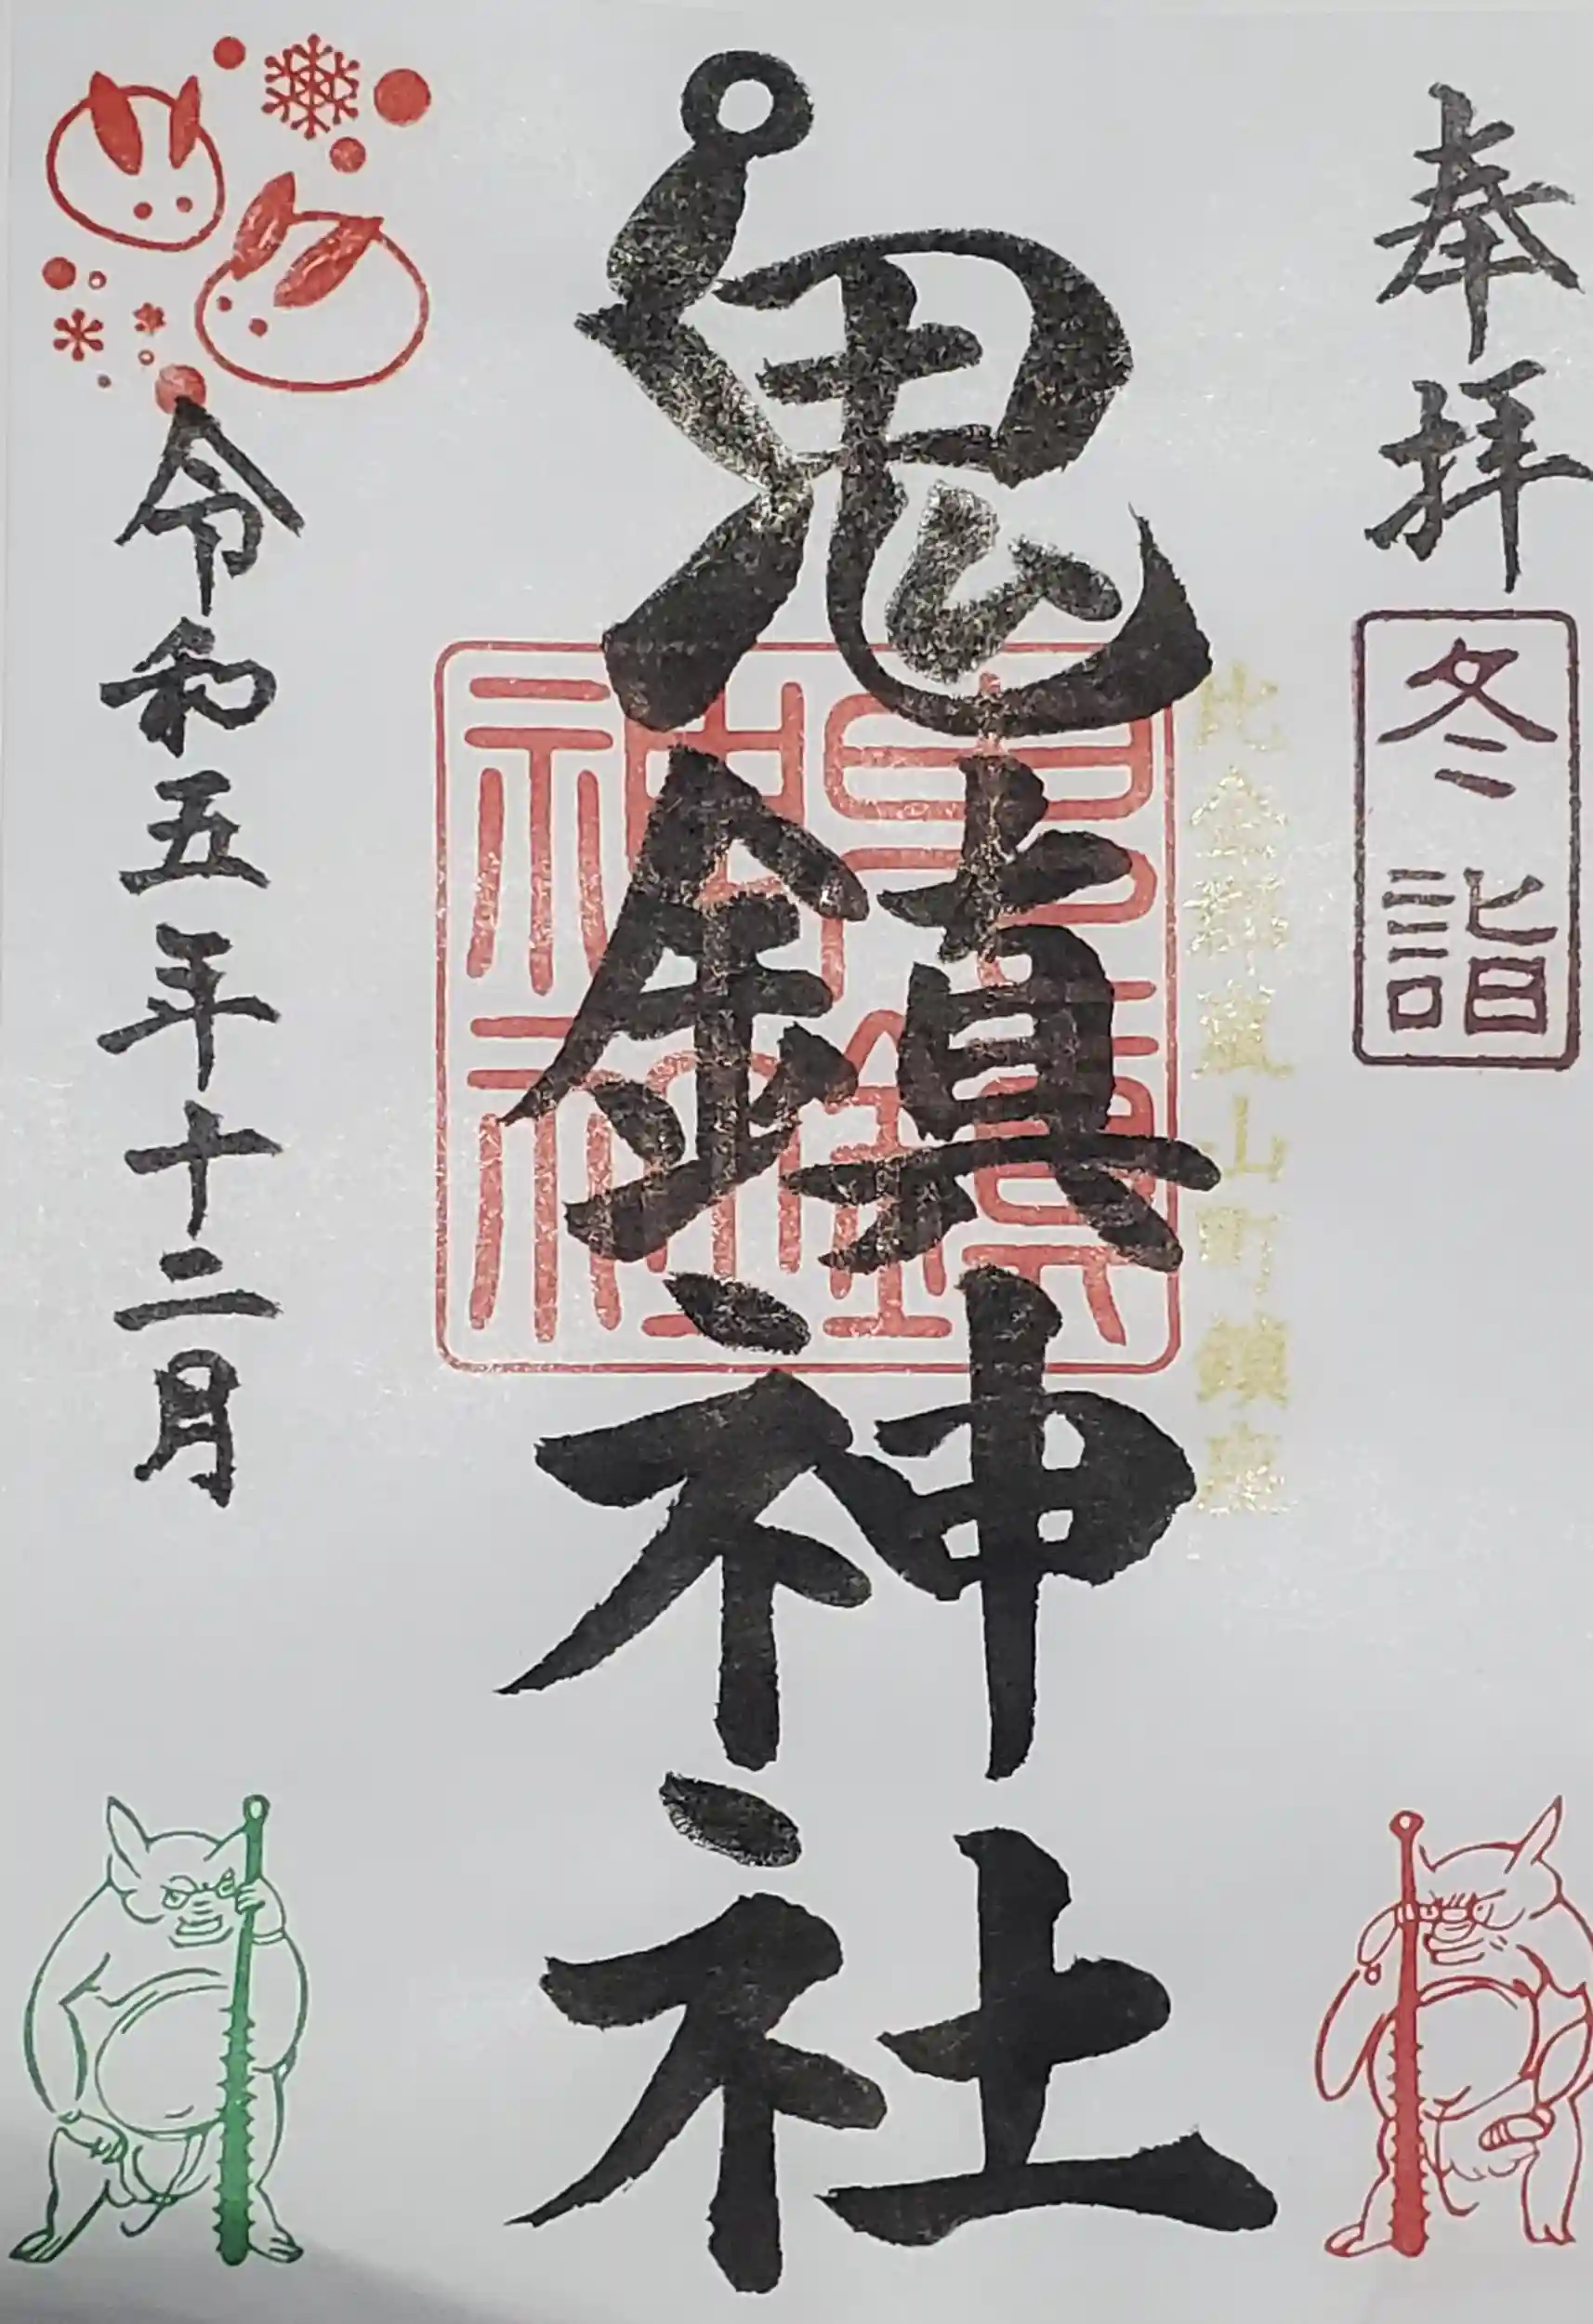 奉拝
冬詣
比企郡嵐山町鎮座
鬼鎮神社
鬼鎮
神社
令和五年十二月